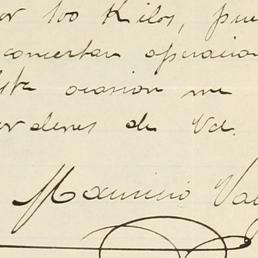 or 100 Kilos, pue
concertar operacion
esta ocasion me
ordenes de Vd.
Mauricio Val